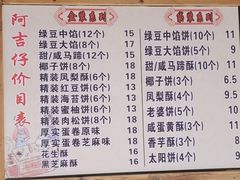 阿吉仔价目表
金装系列
绿豆中馅(12个) 15
绿豆大馅(8个) 15
甜/咸马蹄(12个) 15
椰子饼(8个) 18
精装凤梨酥(6个) 18
精装红豆饼(6个) 18
精装海苔饼(6个) 18
精装蜜柚饼(6个) 18
精装肉松饼(8个) 18
厚实蛋卷原味 18
厚实蛋卷大麻 18
花生酥 16
黑芝麻酥 16
装系列
绿豆中馅饼(10个) 11
甜/咸马蹄酥(10个) 11
椰子饼(5个) 11
香饼(3个) 6.5
凤梨酥(4个) 9.5
老婆饼(5个) 11
咸蛋黄酥(3个) 11
香芋酥(3个) 11
太阳饼(4个) 9